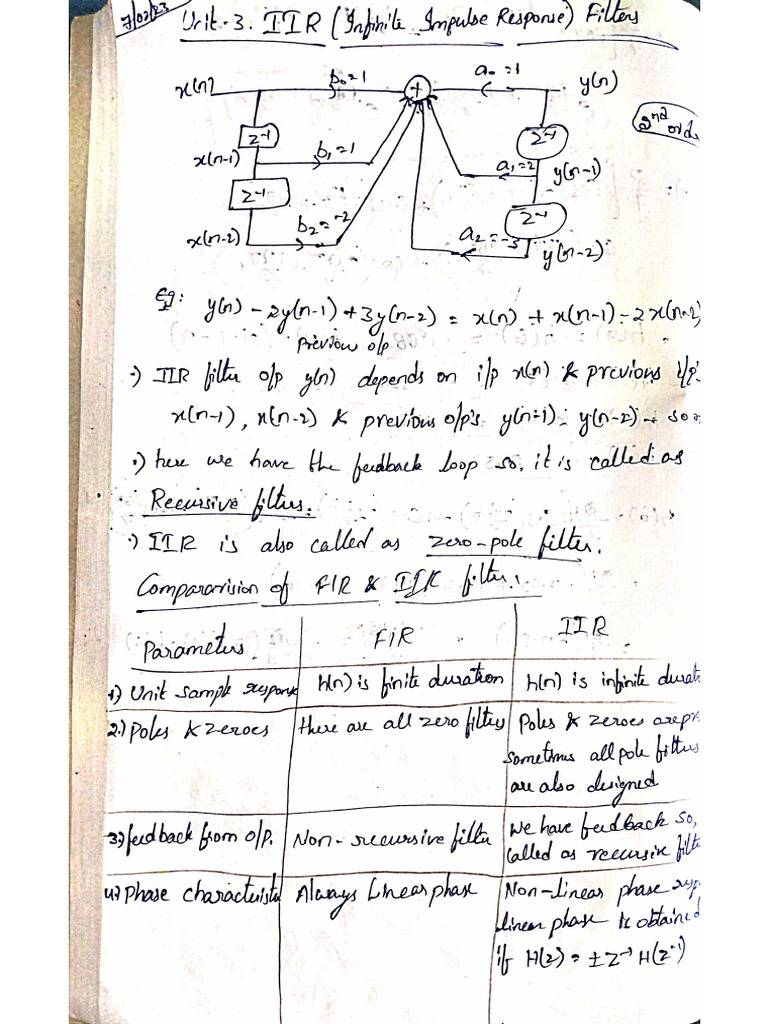 7/02/23
Unit-3. IIR (Infinite Impulse Response) Filters
x(n) b₀=1 + a₀=1 y(n)
2nd orde
z⁻¹ z⁻¹
x(n-1) b₁=1 a₁=2 y(n-1)
z⁻¹ z⁻¹
x(n-2) b₂=-2 a₂=-3 y(n-2)
Eg: y(n) - 2y(n-1) + 3y(n-2) = x(n) + x(n-1) - 2x(n-2)
previou o/p
•) IIR filter o/p y(n) depends on i/p x(n) & previous i/p'
x(n-1), x(n-2) & previous o/p's y(n-1) - y(n-2) - so
•) here we have the feedback loop so, it is called as
Recursive filters.
•) IIR is also called as zero-pole filter.
Compararision of FIR & IIR filter:
Parameters FIR IIR
1) Unit sample response h(n) is finite duration h(n) is infinite durat
2.) Poles & zeroes there are all zero filters Poles & zeroes are pr
sometimes all pole filters
are also designed
3.) feedback from o/p. Non-recursive filter We have feedback so,
called as recursive filte
4) Phase characterist Always Linear phase Non-linear phase resp.
linear phase is obtained
if H(z) = ± z⁻¹ H(z⁻¹)